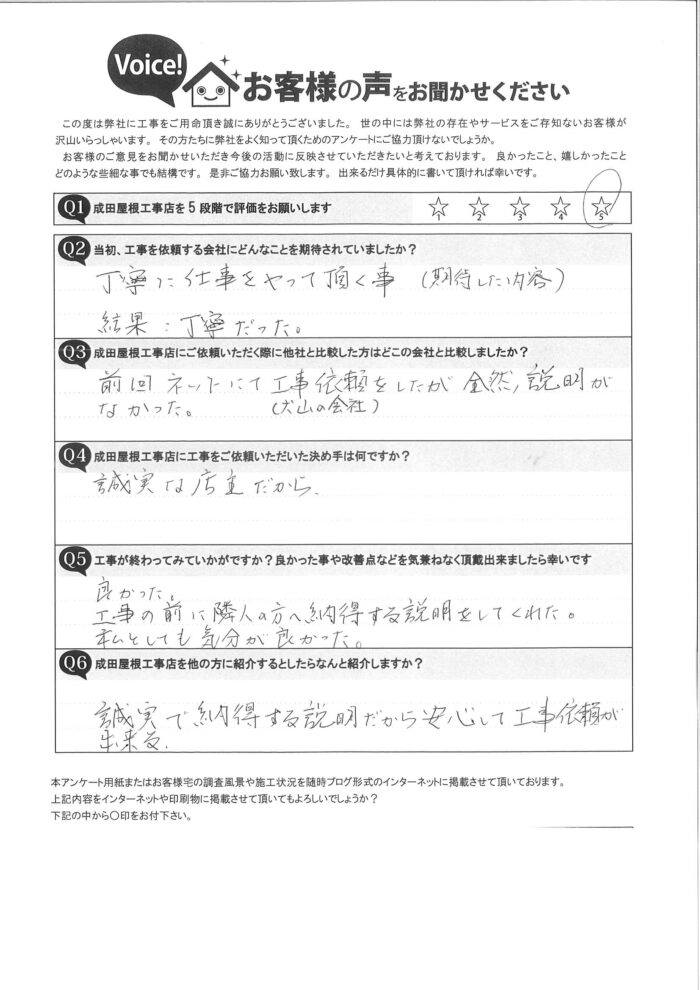 Voice!
お客様の声をお聞かせください
この度は弊社に工事をご用命頂き誠にありがとうございました。 世の中には弊社の存在やサービスをご存知ないお客様が
沢山いらっしゃいます。 その方たちに弊社をよく知って頂くためのアンケートにご協力頂けないでしょうか。
お客様のご意見をお聞かせいただき今後の活動に反映させていただきたいと考えております。 良かったこと、嬉しかったこと
どのような些細な事でも結構です。 是非ご協力お願い致します。 出来るだけ具体的に書いて頂ければ幸いです。
Q1 成田屋根工事店を5段階で評価をお願いします
1 2 3 4 5
Q2 当初、工事を依頼する会社にどんなことを期待されていましたか？
丁寧に仕事をやって頂く事 (期待した内容)
結果：丁寧だった。
Q3 成田屋根工事店にご依頼いただく際に他社と比較した方はどこの会社と比較しましたか？
前回ネットにて工事依頼をしたが全然,説明が
なかった。 (犬山の会社)
Q4 成田屋根工事店に工事をご依頼いただいた決め手は何ですか？
誠実な店主だから.
Q5 工事が終わってみていかがですか？良かった事や改善点などを気兼ねなく頂戴出来ましたら幸いです
良かった。
工事の前に隣人の方へ納得する説明をしてくれた。
私としても気分が良かった。
Q6 成田屋根工事店を他の方に紹介するとしたらなんと紹介しますか？
誠実で納得する説明だから安心して工事依頼が
出来る.
本アンケート用紙またはお客様宅の調査風景や施工状況を随時ブログ形式のインターネットに掲載させて頂いております。
上記内容をインターネットや印刷物に掲載させて頂いてもよろしいでしょうか？
下記の中から〇印をお付下さい。